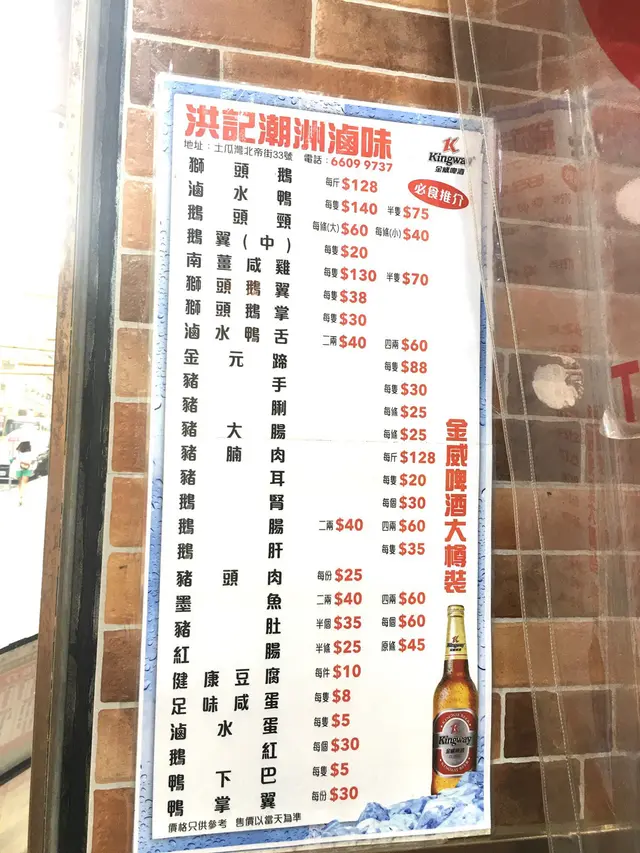 洪記潮洲滷味
地址：土瓜灣北帝街33號 電話：6609 9737
Kingway
金威啤酒
必食推介
獅頭鵝 每斤 $128
滷水鴨 每隻 $140 半隻 $75
鵝頭頸 每條(大) $60 每條(小) $40
鵝翼(中) 每隻 $20
南薑咸雞 每隻 $130 半隻 $70
獅頭鵝翼 每隻 $38
獅頭鵝掌 每隻 $30
滷水鴨舌 二兩 $40 四兩 $60
金元蹄 每隻 $88
豬手 每隻 $30
豬脷 每條 $25
豬大腸 每條 $25
豬腩肉 每斤 $128
豬耳 每隻 $20
鵝腎 每個 $30
鵝腸 二兩 $40 四兩 $60
鵝肝 每隻 $35
豬頭肉 每份 $25
墨魚 二兩 $40 四兩 $60
豬肚 半個 $35 每個 $60
紅腸 半條 $25 原條 $45
健康豆腐 每件 $10
足味咸蛋 每隻 $8
滷水蛋 每隻 $5
鵝紅 每個 $30
鴨下巴 每隻 $5
鴨掌翼 每份 $30
價格只供參考 售價以當天為準
金威啤酒大樽裝
Kingway
Kingway
金威啤酒